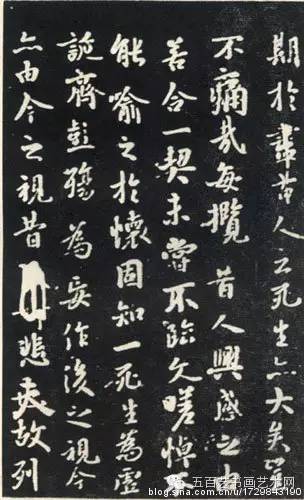 期於盡人云死生亦大矣豈
不痛哉每攬昔人興感之由
若合一契未嘗不臨文嗟悼不
能喻之於懷固知一死生為虛
誕齊彭殤為妄作後之視今
亦由今之視昔悲夫故列
五百艺书画艺术网
blog.sina.com.cn/u/1729843100